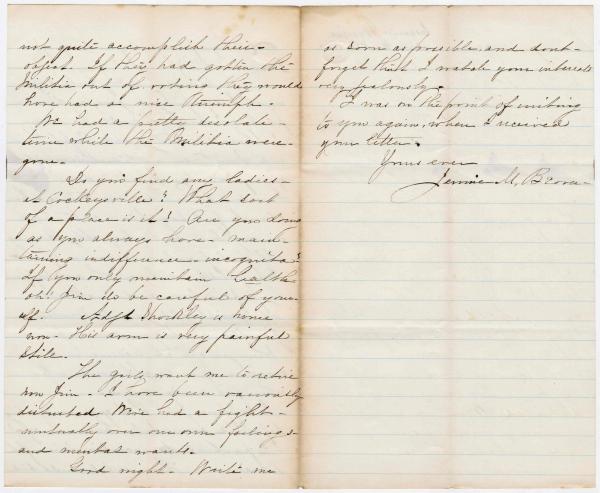 not quite accomplish their
object. If they had gotten the
Militia out of voting they would
have had a nice triumph.
We had a pretty desolate
time while the Militia were
gone.
Do you find any ladies
at Cockeysville? What sort
of a place is it? Are you doing
as you always have - main-
taining indifference - incognita?
If you only maintain health
oh! Jim do be careful of your-
self. Adjt Shockley is home
now. His arm is very painful
still.
The girls want me to retire
now Jim - I have been variously
disturbed. We've had a fight -
mutually over our own failings
and mental wants.
Good night - Write me
as soon as possible, and dont
forget that I watch your interests
very jealously.
I was on the point of writing
to you again, when I received
your letter.
Yours ever
Jennie M. Brown